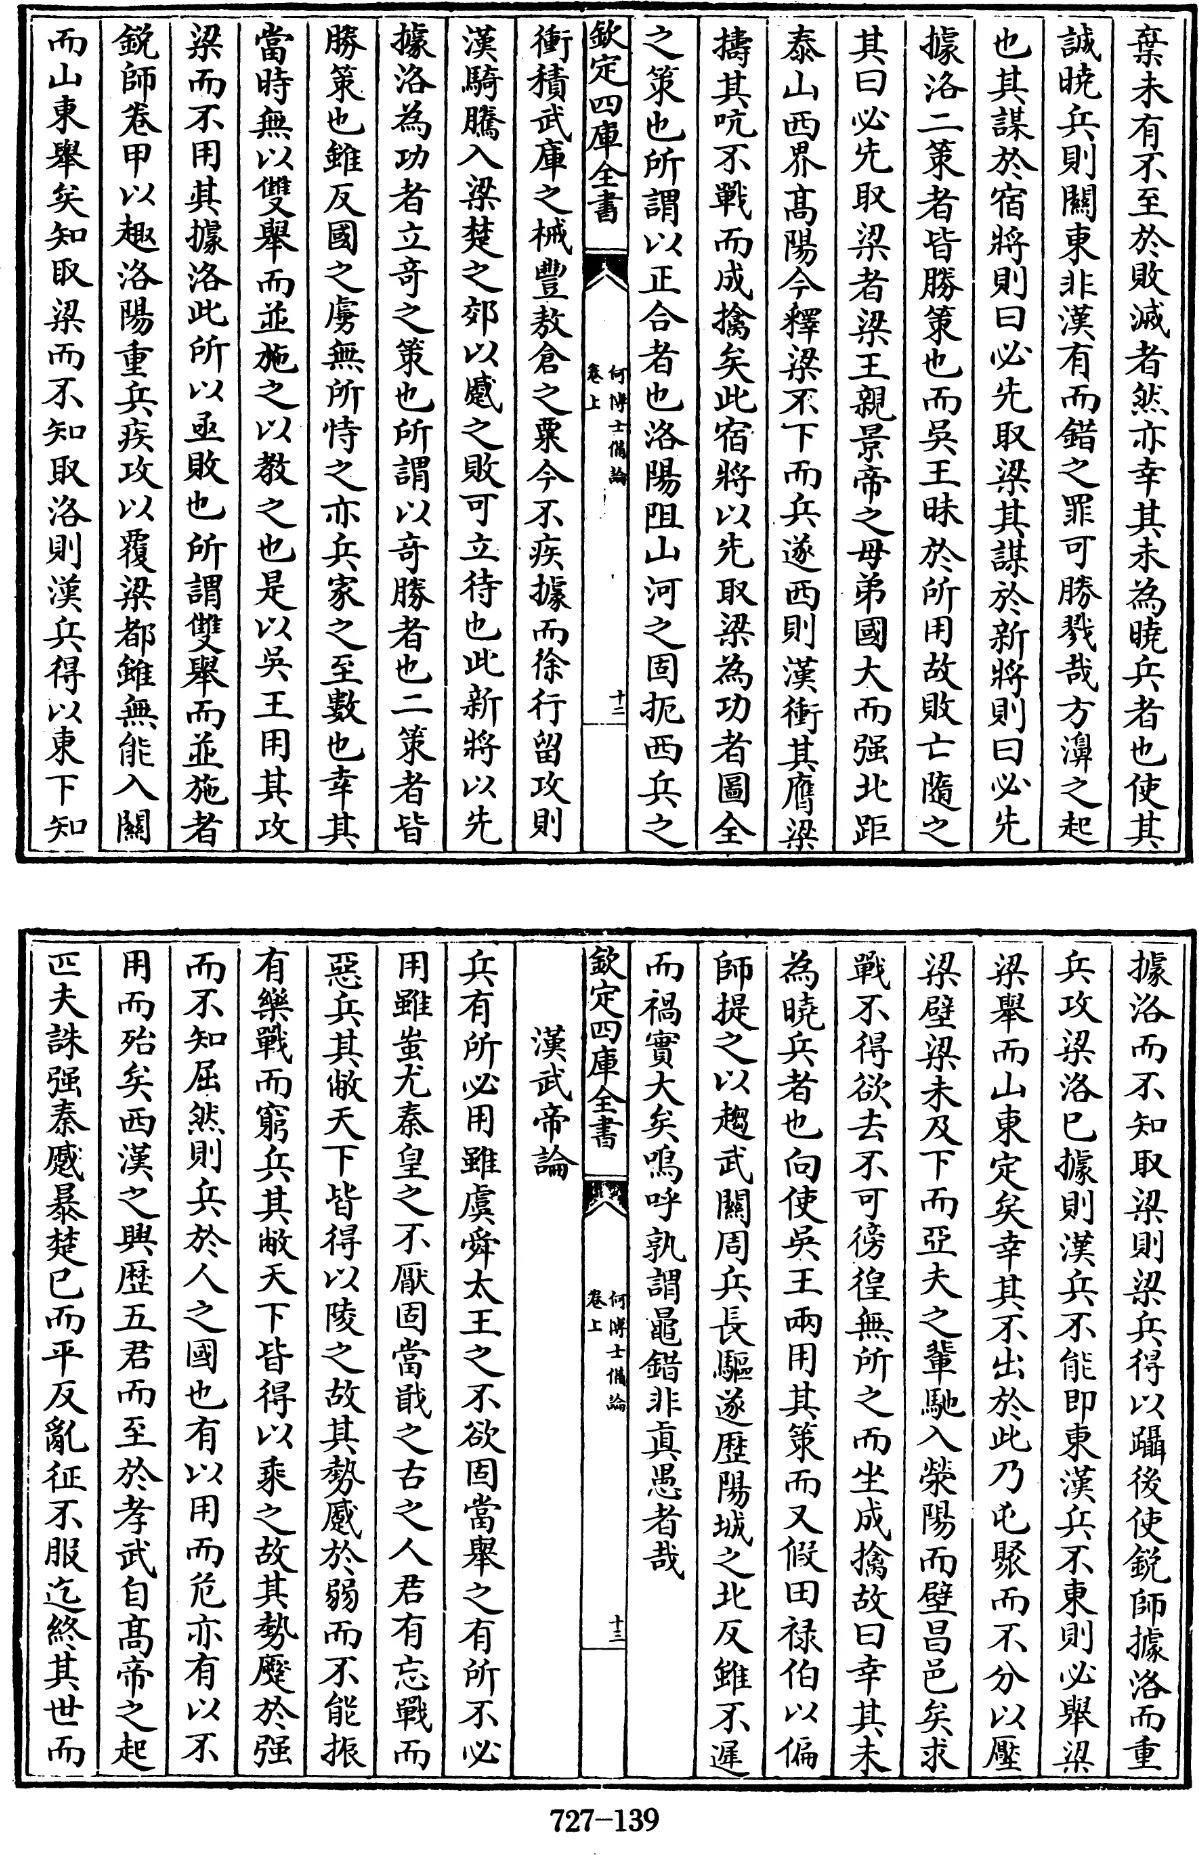 棄未有不至於敗滅者然亦幸其未為曉兵者也使其
誠曉兵則關東非漢有而錯之罪可勝戮哉方濞之起
也其謀於宿將則曰必先取梁其謀於新將則曰必先
據洛二策者皆勝策也而吳王昧於所用故敗亡隨之
其曰必先取梁者梁王親景帝之母弟國大而强北距
泰山西界髙陽今釋梁不下而兵遂西則漢衝其膺梁
擣其吭不戰而成擒矣此宿將以先取梁為功者圖全
之策也所謂以正合者也洛陽阻山河之固扼西兵之
欽定四庫全書
何博士備論
卷上
十二
衝積武庫之械豐敖倉之粟今不疾據而徐行留攻則
漢騎騰入梁楚之郊以蹙之敗可立待也此新將以先
據洛為功者立竒之策也所謂以竒勝者也二策者皆
勝策也雖反國之虜無所恃之亦兵家之至數也幸其
當時無以雙舉而並施之以教之也是以吳王用其攻
梁而不用其據洛此所以亟敗也所謂雙舉而並施者
鋭師卷甲以趣洛陽重兵疾攻以覆梁都雖無能入關
而山東舉矣知取梁而不知取洛則漢兵得以東下知
據洛而不知取梁則梁兵得以躡後使鋭師據洛而重
兵攻梁洛已據則漢兵不能即東漢兵不東則必舉梁
梁舉而山東定矣幸其不出於此乃屯聚而不分以壓
梁壁梁未及下而亞夫之軰馳入滎陽而壁昌邑矣求
戰不得欲去不可徬徨無所之而坐成擒故曰幸其未
為曉兵者也向使吳王兩用其策而又假田禄伯以偏
師提之以趨武關周兵長驅遂歴陽城之北反雖不遲
而禍實大矣嗚呼孰謂鼂錯非真愚者哉
欽定四庫全書
何博士備論
卷上
十三
漢武帝論
兵有所必用雖虞舜太王之不欲固當舉之有所不必
用雖蚩尤秦皇之不厭固當戢之古之人君有忘戰而
惡兵其敝天下皆得以陵之故其勢蹙於弱而不能振
有樂戰而窮兵其敝天下皆得以乘之故其勢蹙於强
而不知屈然則兵於人之國也有以用而危亦有以不
用而殆矣西漢之興歴五君而至於孝武自髙帝之起
匹夫誅强秦蹙暴楚已而平反亂征不服迄終其世而
727-139